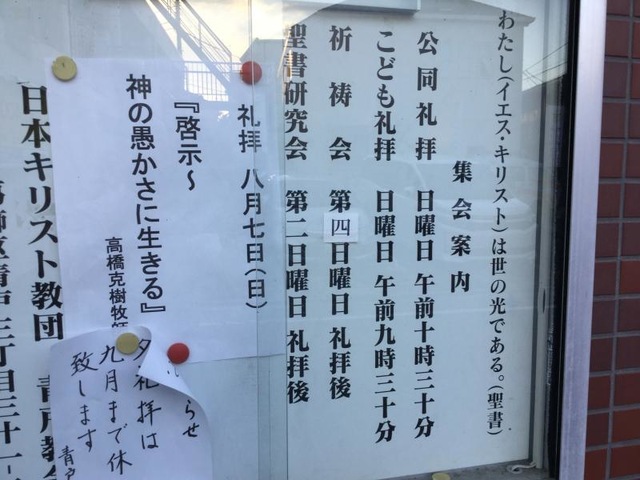 わたし(イエス・キリスト)は世の光である。(聖書)
集会案内
公同礼拝 日曜日 午前十時三十分
こども礼拝 日曜日 午前九時三十分
祈祷会 第四日曜日 礼拝後
聖書研究会 第二日曜日 礼拝後
礼拝 八月七日(日)
『啓示～
神の愚かさに生きる』
高橋克樹牧師
らせ
夕礼拝は
九月まで休
致します
青戸
日本キリスト教団 青戸教会
葛飾区青戸三丁目三十一